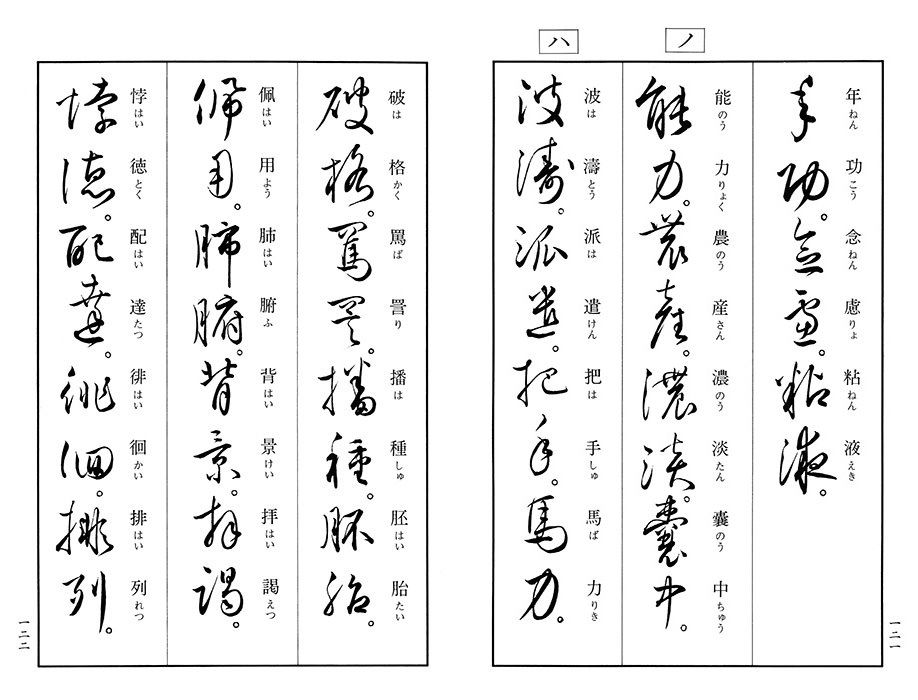 年ねん 功こう 念ねん 慮りょ 粘ねん 液えき
年功。念慮。粘液。
ノ
能のう 力りょく 農のう 産さん 濃のう 淡たん 嚢のう 中ちゅう
能力。農産。濃淡。嚢中。
ハ
波は 濤とう 派は 遣けん 把は 手しゅ 馬ば 力りき
波濤。派遣。把手。馬力。
一二一
破は 格かく 罵ば 詈り 播は 種しゅ 胚はい 胎たい
破格。罵詈。播種。胚胎。
佩はい 用よう 肺はい 腑ふ 背はい 景けい 拝はい 謁えつ
佩用。肺腑。背景。拝謁。
悖はい 徳とく 配はい 達たつ 徘はい 徊かい 排はい 列れつ
悖徳。配達。徘徊。排列。
一二二